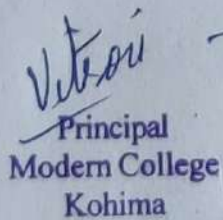 Principal
Modern College
Kohima